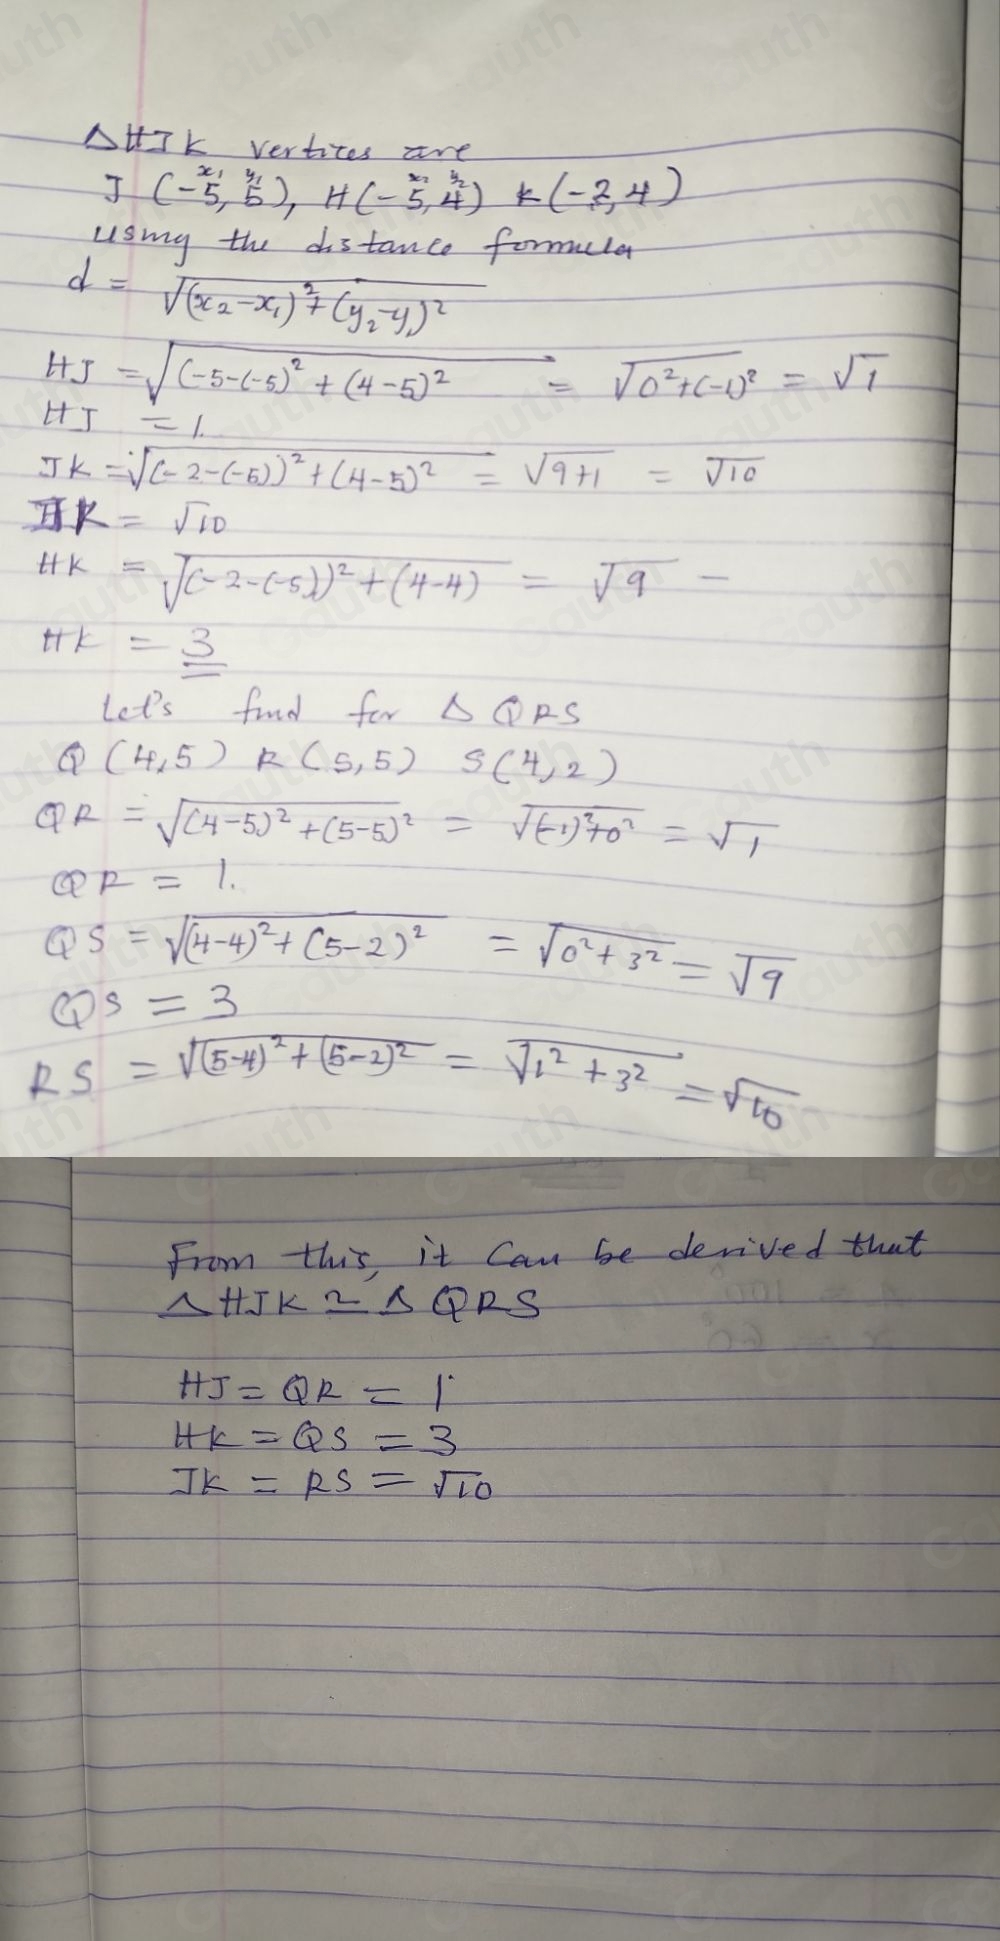 △HJK vertices are
x₁ y₁ x₂ y₂
J (-5, 5), H(-5, 4) K(-2, 4)
using the distance formula
d = √(x₂-x₁)²+(y₂-y₁)²
HJ = √(-5-(-5)² + (4-5)² = √0²+(-1)² = √1
HJ = 1.
JK = √(-2-(-5))²+(4-5)² = √9+1 = √10
JK = √10
HK = √(-2-(-5))²+(4-4) = √9 -
HK = 3
Let's find for △ QRS
Q (4,5) R (5,5) S(4,2)
QR = √(4-5)²+(5-5)² = √(-1)²+0² = √1
QR = 1.
QS = √(4-4)²+(5-2)² = √0²+3² = √9
QS = 3
RS = √(5-4)²+(5-2)² = √1²+3² = √10
From this, it can be derived that
△HJK ≃ △QRS
HJ = QR = 1
HK = QS = 3
JK = RS = √10